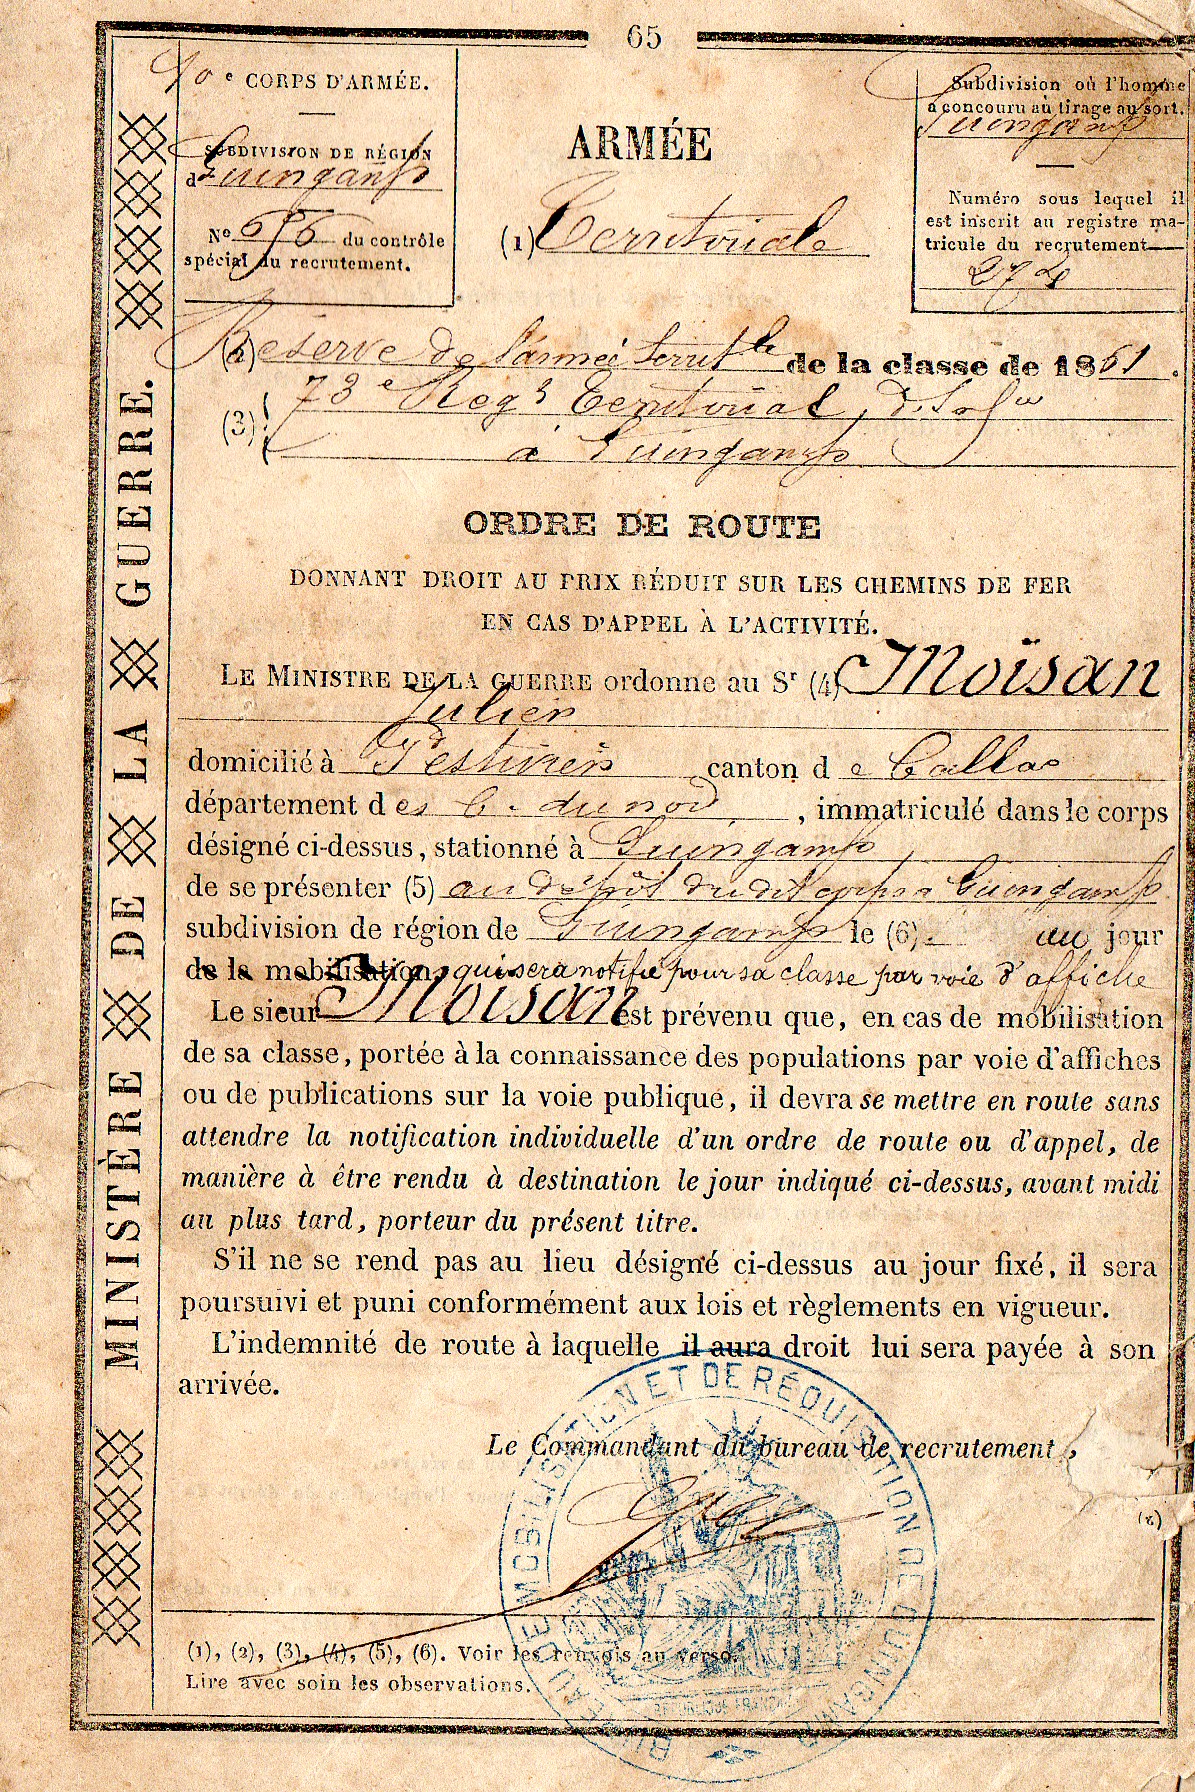 65
10e CORPS D'ARMÉE.
SUBDIVISION DE RÉGION
de Guingamp
No 656 du contrôle
spécial du recrutement.
ARMÉE
(1) Territoriale
Subdivision où l'homme
a concouru au tirage au sort.
Guingamp
Numéro sous lequel il
est inscrit au registre ma-
tricule du recrutement
(2) Réserve de l'armée territle de la classe de 1861.
(3) 73e Regt Territorial d'Infie
à Guingamp
MINISTÈRE DE LA GUERRE.
ORDRE DE ROUTE
DONNANT DROIT AU PRIX RÉDUIT SUR LES CHEMINS DE FER
EN CAS D'APPEL À L'ACTIVITÉ.
LE MINISTRE DE LA GUERRE ordonne au Sr (4) Moïsan
Julien
domicilié à Pestivien canton de Callac
département des C. du nord, immatriculé dans le corps
désigné ci-dessus, stationné à Guingamp
de se présenter (5) au dépôt dudit corps à Guingamp
subdivision de région de Guingamp le (6). au jour
de la mobilisation qui sera notifié pour sa classe par voie d'affiche
Le sieur Moïsan est prévenu que, en cas de mobilisation
de sa classe, portée à la connaissance des populations par voie d'affiches
ou de publications sur la voie publique, il devra se mettre en route sans
attendre la notification individuelle d'un ordre de route ou d'appel, de
manière à être rendu à destination le jour indiqué ci-dessus, avant midi
au plus tard, porteur du présent titre.
S'il ne se rend pas au lieu désigné ci-dessus au jour fixé, il sera
poursuivi et puni conformément aux lois et règlements en vigueur.
L'indemnité de route à laquelle il aura droit lui sera payée à son
arrivée.
Le Commandant du bureau de recrutement,
BUREAU DE MOBILISATION ET DE RÉQUISITION DE GUINGAMP
RÉPUBLIQUE FRANÇAISE
(1), (2), (3), (4), (5), (6). Voir les renvois au verso.
Lire avec soin les observations.